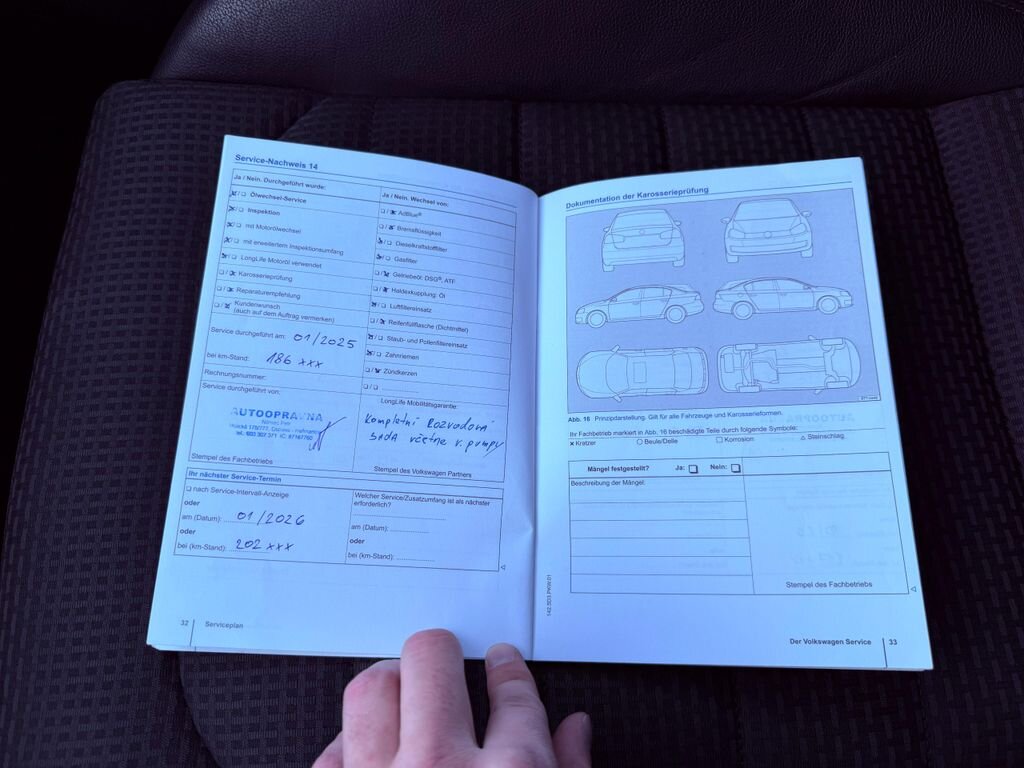 Service-Nachweis 14
Ja / Nein. Durchgeführt wurde:
Ölwechsel-Service
Inspektion
mit Motorölwechsel
mit erweitertem Inspektionsumfang
LongLife Motoröl verwendet
Karosserieprüfung
Reparaturempfehlung
Kundenwunsch
(auch auf dem Auftrag vermerken)
Service durchgeführt am: 01/2025
bei km-Stand: 186 xxx
Rechnungsnummer:
Service durchgeführt von:
AUTOOPRAVNA
Stempel des Fachbetriebs
Ja / Nein. Wechsel von:
AdBlue®
Bremsflüssigkeit
Dieselkraftstofffilter
Gasfilter
Getriebeöl: DSG®, ATF
Haldexkupplung: Öl
Luftfiltereinsatz
Reifenfüllflasche (Dichtmittel)
Staub- und Pollenfiltereinsatz
Zahnriemen
Zündkerzen
LongLife Mobilitätsgarantie:
Kompletní rozvodová
sada včetně v. pumpy
Stempel des Volkswagen Partners
Ihr nächster Service-Termin
nach Service-Intervall-Anzeige
oder
am (Datum): 01/2026
oder
bei (km-Stand): 202 xxx
Welcher Service/Zusatzumfang ist als nächster
erforderlich?
am (Datum):
oder
bei (km-Stand):
32 Serviceplan
Dokumentation der Karosserieprüfung
Abb. 16 Prinzipdarstellung. Gilt für alle Fahrzeuge und Karosserieformen.
Ihr Fachbetrieb markiert in Abb. 16 beschädigte Teile durch folgende Symbole:
x Kratzer ○ Beule/Delle □ Korrosion △ Steinschlag
Mängel festgestellt? Ja: Nein:
Beschreibung der Mängel:
Stempel des Fachbetriebs
142.5D3.PKW.01
Der Volkswagen Service 33